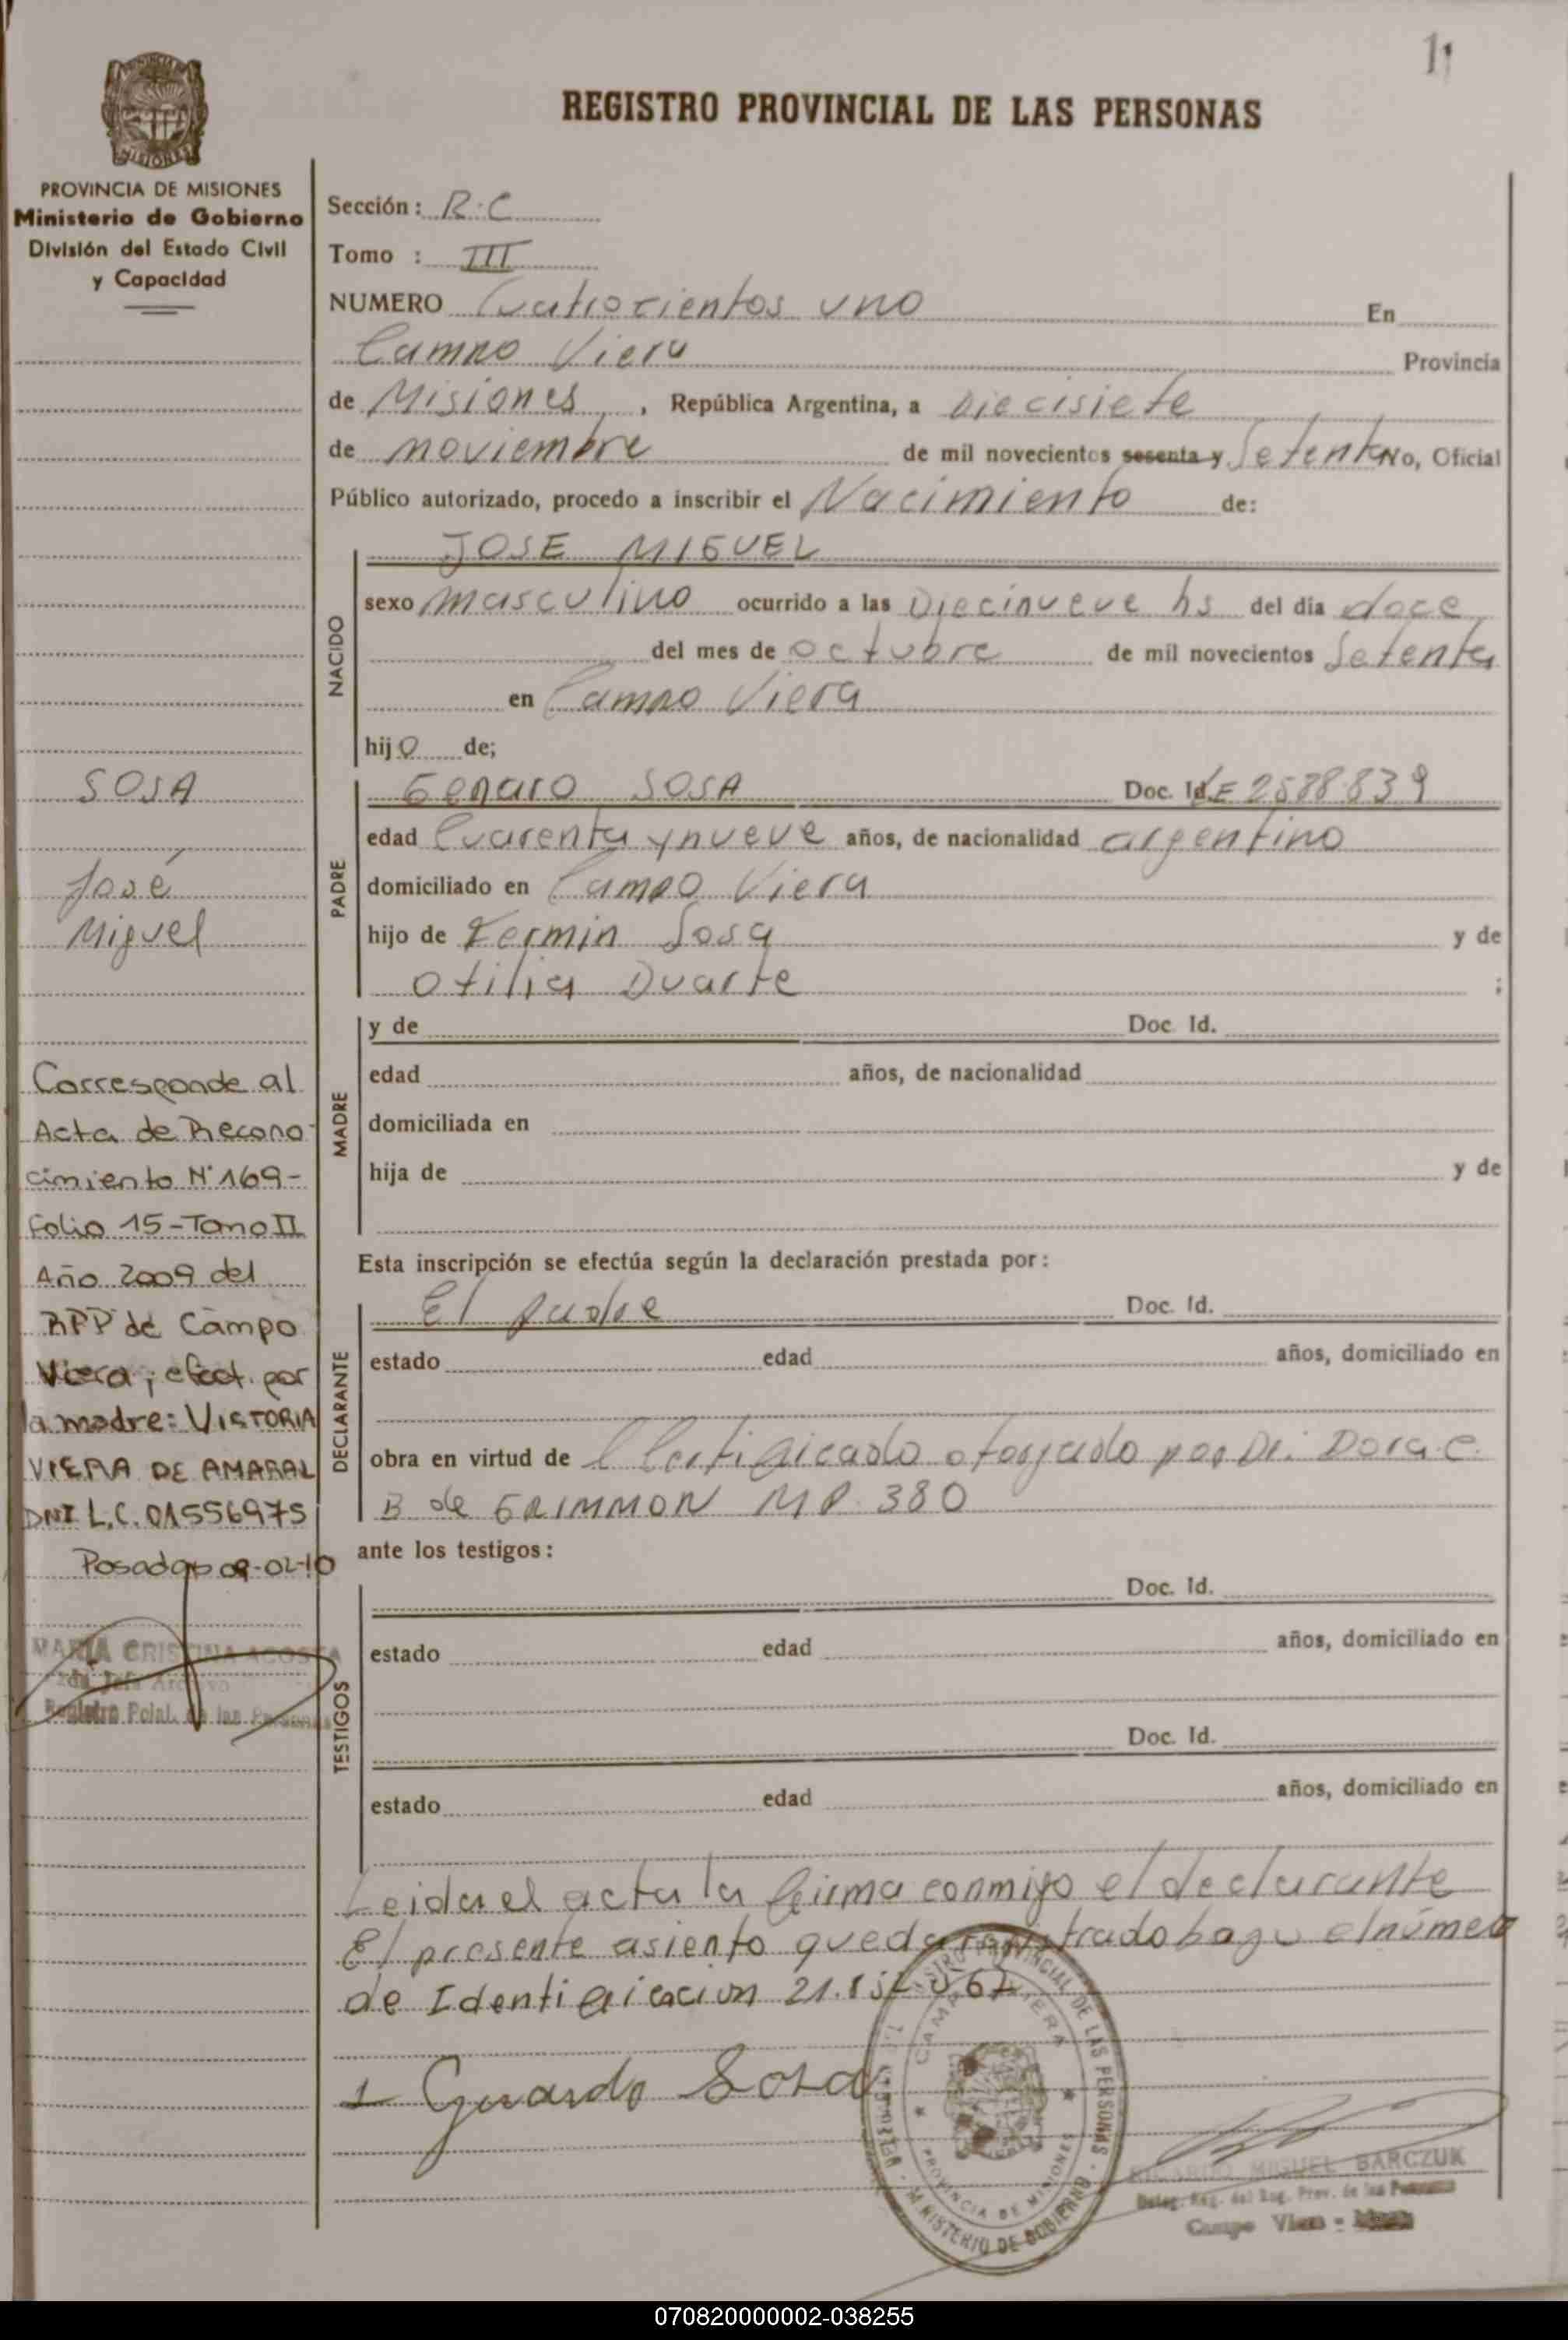 11
REGISTRO PROVINCIAL DE LAS PERSONAS
PROVINCIA DE MISIONES
Ministerio de Gobierno
División del Estado Civil
y Capacidad
SOSA
José
Miguel
Corresponde al
Acta de Recono-
cimiento N° 169-
Folio 15-Tomo II
Año 2009 del
RPP de Campo
Viera; efect. por
la madre: VICTORIA
VIERA DE AMARAL
DNI L.C. 01556975
Posadas 09-02-10
MARIA CRISTINA ACOSTA
2da Jefa Archivo
Registro Pcial. de las Personas
Sección: R.C
Tomo : III
NUMERO Cuatrocientos uno En
Campo Viera Provincia
de Misiones, República Argentina, a Diecisiete
de noviembre de mil novecientos sesenta y Setenta Yo, Oficial
Público autorizado, procedo a inscribir el Nacimiento de:
NACIDO
JOSE MIGUEL
sexo masculino ocurrido a las Diecinueve hs del día doce
del mes de octubre de mil novecientos Setenta
en Campo Viera
hijo de;
PADRE
Genaro SOSA Doc. Id. LE 2588.839
edad Cuarenta y nueve años, de nacionalidad argentino
domiciliado en Campo Viera
hijo de Fermin Sosa y de
Otilia Duarte ;
MADRE
y de Doc. Id.
edad años, de nacionalidad
domiciliada en
hija de y de
Esta inscripción se efectúa según la declaración prestada por:
DECLARANTE
El padre Doc. Id.
estado edad años, domiciliado en
obra en virtud de Certificado otorgado por Dr. Dora C.
B de GRIMMON MP 380
ante los testigos:
TESTIGOS
Doc. Id.
estado edad años, domiciliado en
Doc. Id.
estado edad años, domiciliado en
Leida el acta la firma conmigo el declarante
El presente asiento queda registrado bajo el número
de Identificacion 21.
Sosa
REGISTRO PROVINCIAL DE LAS PERSONAS
MINISTERIO DE GOBIERNO
CAMPO VIERA
PROVINCIA DE MISIONES
RICARDO MIGUEL BARCZUK
Deleg. Reg. del Reg. Prov. de las Personas
Campo Viera -
070820000002-038255